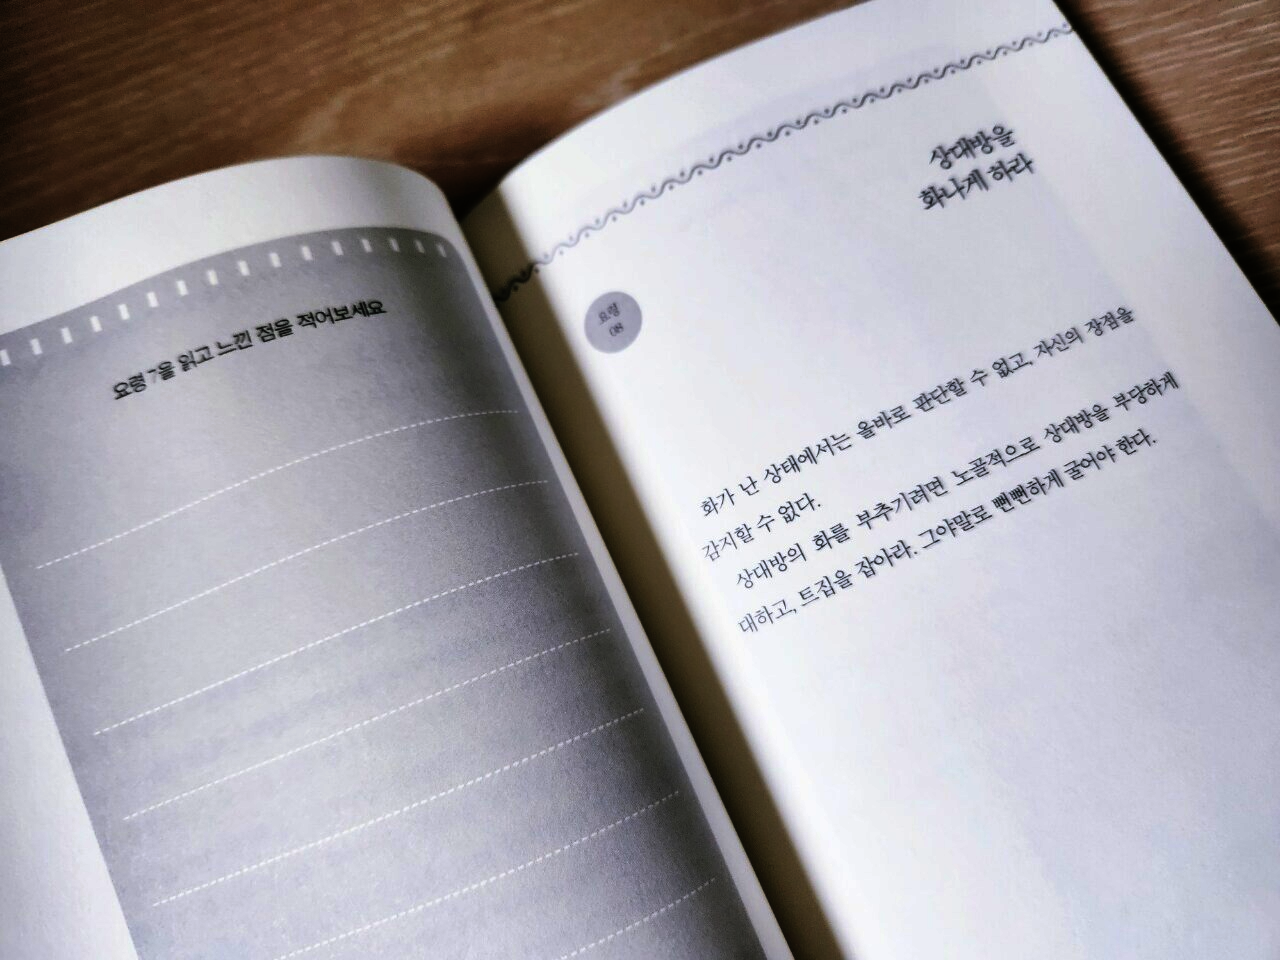 요령 7을 읽고 느낀 점을 적어보세요
상대방을
화나게 하라
요령
08
화가 난 상태에서는 올바로 판단할 수 없고, 자신의 장점을
감지할 수 없다.
상대방의 화를 부추기려면 노골적으로 상대방을 부당하게
대하고, 트집을 잡아라. 그야말로 뻔뻔하게 굴어야 한다.